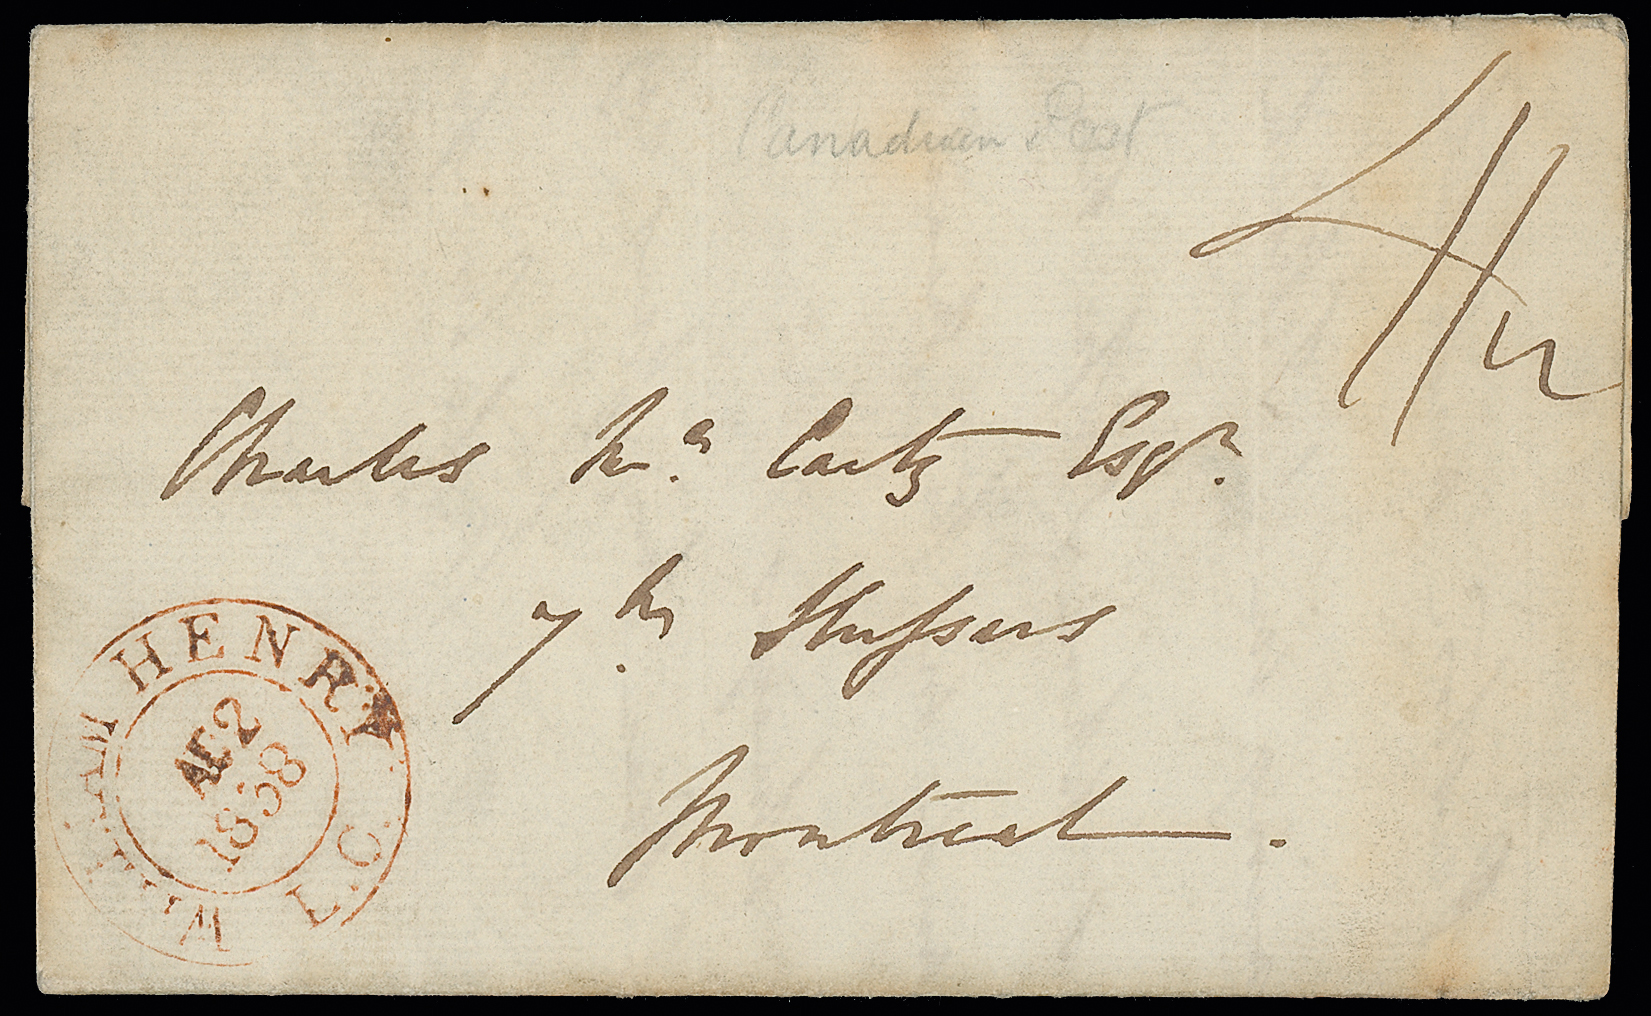 Canadian Post
4½
Charles Mc Carty Esqr.
7th Hussars
Montreal.
WILLIAM HENRY L.C.
AU 2
1838